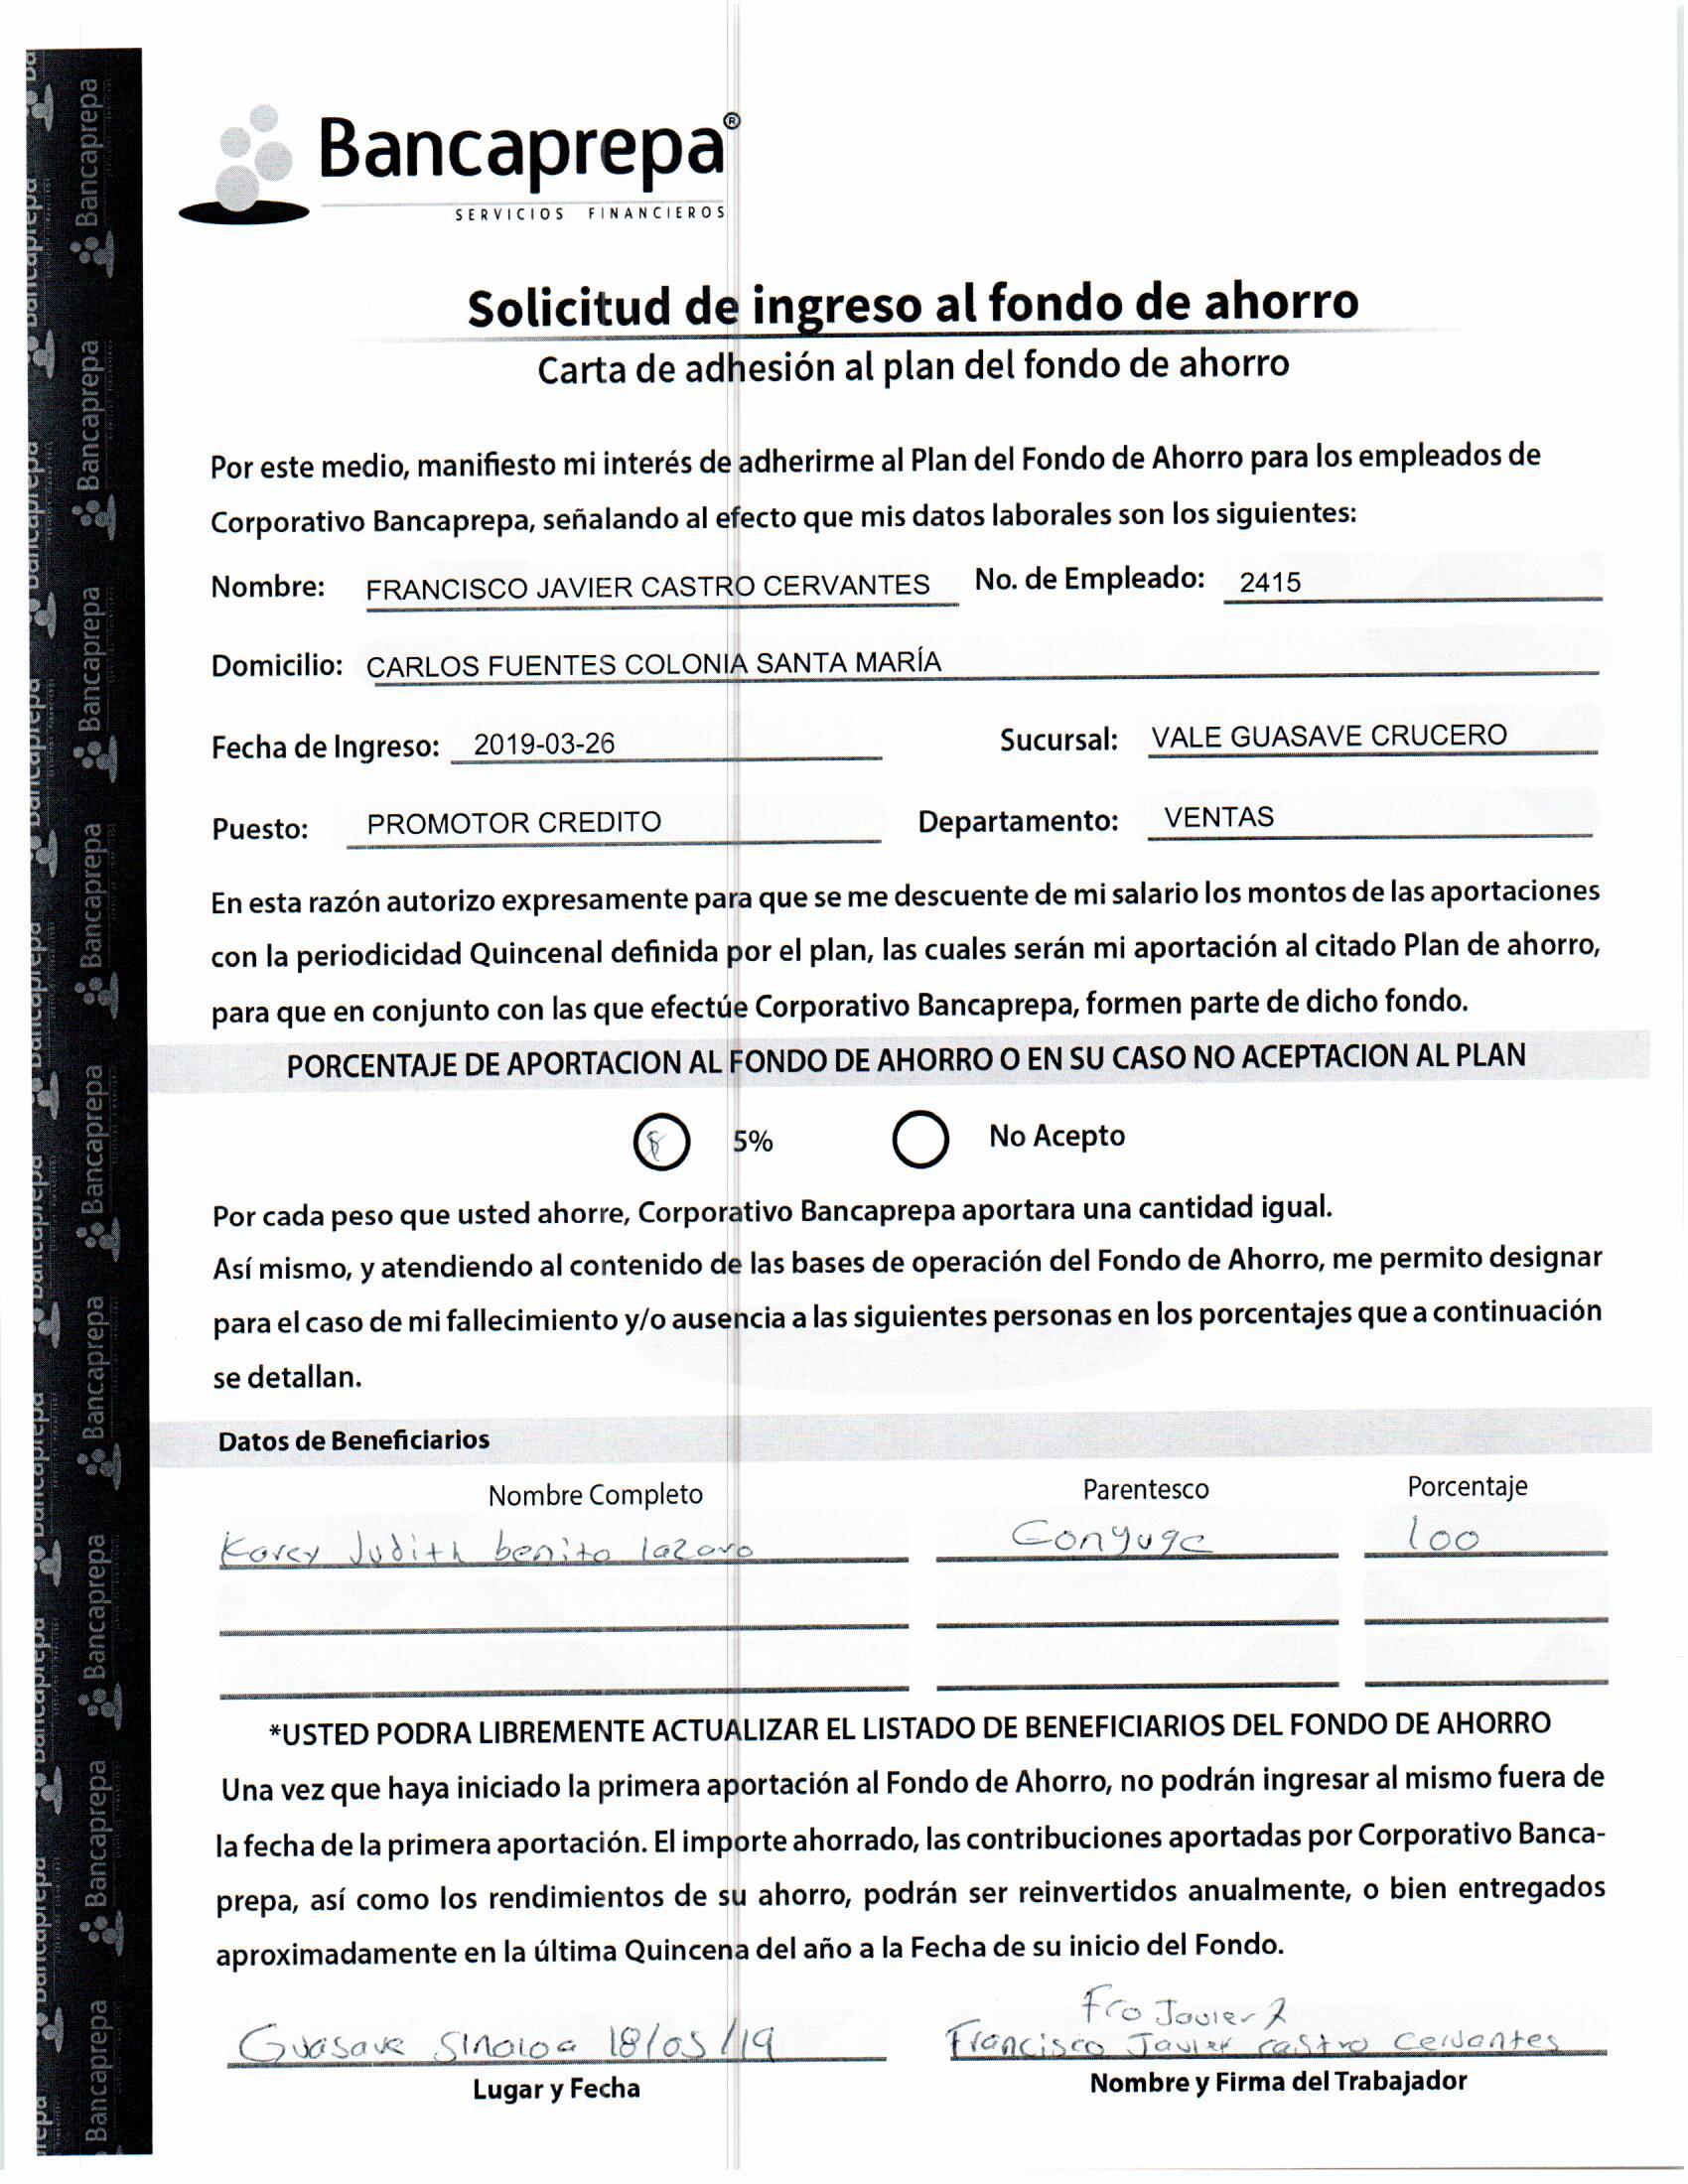 Bancaprepa®
SERVICIOS FINANCIEROS
Solicitud de ingreso al fondo de ahorro
Carta de adhesión al plan del fondo de ahorro
Por este medio, manifiesto mi interés de adherirme al Plan del Fondo de Ahorro para los empleados de
Corporativo Bancaprepa, señalando al efecto que mis datos laborales son los siguientes:
Nombre: FRANCISCO JAVIER CASTRO CERVANTES No. de Empleado: 2415
Domicilio: CARLOS FUENTES COLONIA SANTA MARÍA
Fecha de Ingreso: 2019-03-26 Sucursal: VALE GUASAVE CRUCERO
Puesto: PROMOTOR CREDITO Departamento: VENTAS
En esta razón autorizo expresamente para que se me descuente de mi salario los montos de las aportaciones
con la periodicidad Quincenal definida por el plan, las cuales serán mi aportación al citado Plan de ahorro,
para que en conjunto con las que efectúe Corporativo Bancaprepa, formen parte de dicho fondo.
PORCENTAJE DE APORTACION AL FONDO DE AHORRO O EN SU CASO NO ACEPTACION AL PLAN
5% No Acepto
Por cada peso que usted ahorre, Corporativo Bancaprepa aportara una cantidad igual.
Así mismo, y atendiendo al contenido de las bases de operación del Fondo de Ahorro, me permito designar
para el caso de mi fallecimiento y/o ausencia a las siguientes personas en los porcentajes que a continuación
se detallan.
Datos de Beneficiarios
Nombre Completo Parentesco Porcentaje
Judith benito lazaro Conyuge 100
*USTED PODRA LIBREMENTE ACTUALIZAR EL LISTADO DE BENEFICIARIOS DEL FONDO DE AHORRO
Una vez que haya iniciado la primera aportación al Fondo de Ahorro, no podrán ingresar al mismo fuera de
la fecha de la primera aportación. El importe ahorrado, las contribuciones aportadas por Corporativo Banca-
prepa, así como los rendimientos de su ahorro, podrán ser reinvertidos anualmente, o bien entregados
aproximadamente en la última Quincena del año a la Fecha de su inicio del Fondo.
Fco Javier
Guasave Sinaloa 18/05/19 Francisco Javier castro Cervantes
Lugar y Fecha Nombre y Firma del Trabajador